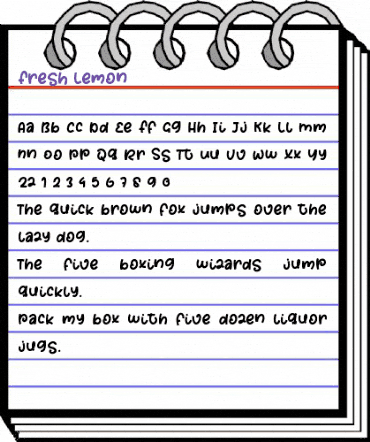 fresh Lemon
Aa Bb Cc Dd Ee Ff Gg Hh Ii Jj Kk Ll Mm
Nn Oo Pp Qq Rr Ss Tt Uu Vv Ww Xx Yy
Zz 1 2 3 4 5 6 7 8 9 0
The quick brown fox jumps over the
lazy dog.
The five boxing wizards jump
quickly.
Pack my box with five dozen liquor
jugs.